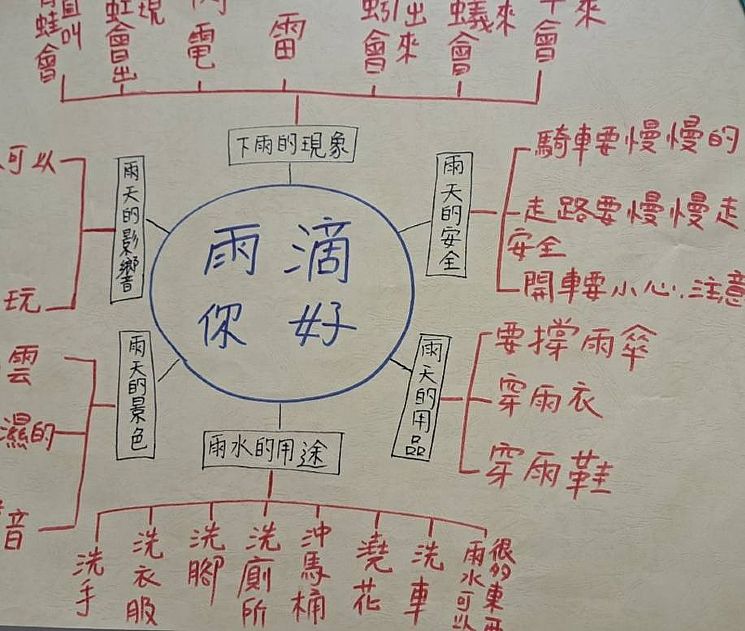 青蛙會
叫
虹會出
現
電
雷
蚓會
出來
蟻會
來
會
來
下雨的現象
可以
玩
雨天的影響
雨滴
你好
雨天的安全
騎車要慢慢的
走路要慢慢走
安全
開車要小心注意
雲
濕的
音
雨天的景色
雨天的用品
要撐雨傘
穿雨衣
穿雨鞋
雨水的用途
洗手
洗衣服
洗腳
洗廁所
沖馬桶
澆花
洗車
很多東西
雨水可以